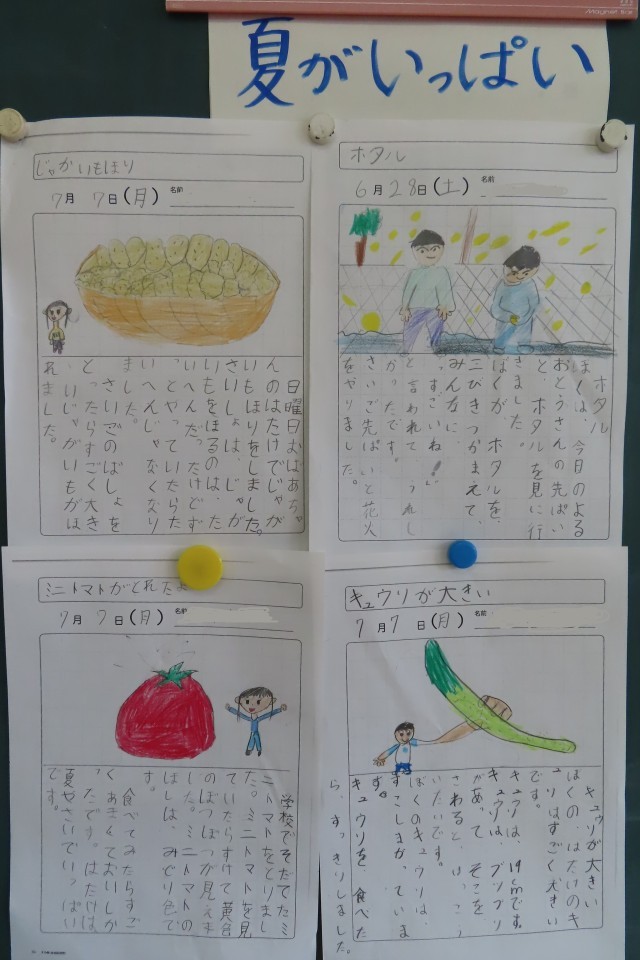 夏がいっぱい
じゃがいもほり
7月 7日(月) 名前
日曜日おばあちゃ
んのはたけでじゃが
いもほりをしました。
さいしょは、じゃが
いもをほるのは、た
いへんだったけどず
っとやっていたらた
いへんじゃなくなり
ました。
さいごのばしょを
とったらすごく大き
いじゃがいもがほ
れました。
ホタル
6月28日(土) 名前
ホタル
ぼくは、今日のよる
おとうさんの先ぱい
と、ホタルを見に行
きました。
ぼくが、ホタルを、
二ひきつかまえて、
みんなに、
「すごいね!」
と言われて、うれし
かったです。
さいご先ぱいと花火
をやりました。
ミニトマトがとれたよ
7月 7日(月) 名前
学校でそだてたミ
ニトマトをとりまし
た。ミニトマトを見
ていたらすけて黄色
のぼつぼつが見えま
した。ミニトマトの
はしは、みどり色で
す。
食べてみたらすご
くあまくておいしか
ったです。はたけは、
夏やさいでいっぱい
です。
キュウリが大きい
7月7日(月) 名前
キュウリが大きい
ぼくの、はたけのキ
ュウリはすごく大きい
です。
キュウリは、19cmです。
キュウリは、ブツブツ
があって、そこを
さわると、
いたいです。
ぼくのキュウリは、
すこしまがっていま
す。
キュウリを、食べた
ら、すっきりしました。